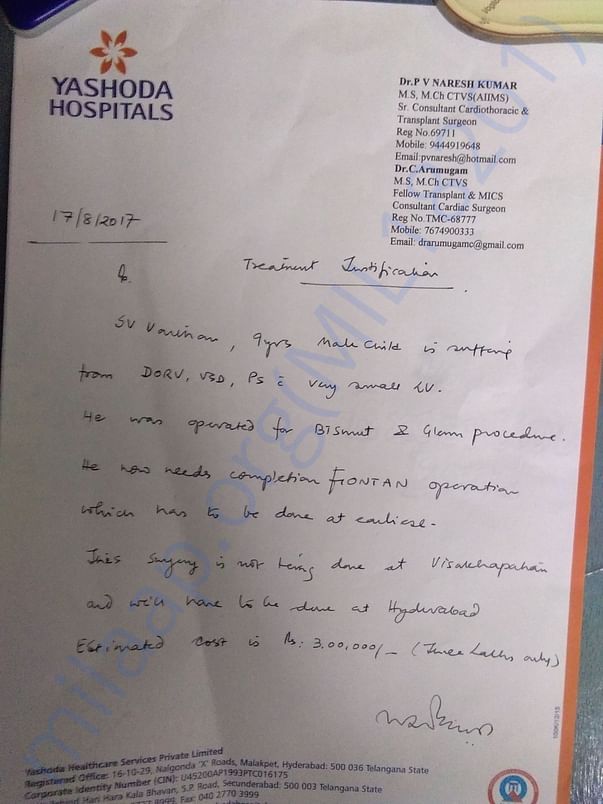 YASHODA
HOSPITALS
Dr.P V NARESH KUMAR
M.S, M.Ch CTVS(AIIMS)
Sr. Consultant Cardiothoracic &
Transplant Surgeon
Reg No.69711
Mobile: 9444919648
Email:pvnaresh@hotmail.com
Dr.C.Arumugam
M.S, M.Ch CTVS
Fellow Transplant & MICS
Consultant Cardiac Surgeon
Reg No.TMC-68777
Mobile: 7674900333
Email: drarumugamc@gmail.com
17/8/2017
Treatment Justification
SV , 9yrs Male Child is suffering
from DORV, VSD, PS c very small LV.
He was operated for & Glenn procedure.
He now needs completion FONTAN operation
which has to be done at earliest.
This surgery is not being done at Visakhapatnam
and will have to be done at Hyderabad
Estimated cost is Rs: 3,00,000/- (Three Lakhs only)
Yashoda Healthcare Services Private Limited
Registered Office: 16-10-29, Nalgonda 'X' Roads, Malakpet, Hyderabad: 500 036 Telangana State
Corporate Identity Number (CIN): U45200AP1993PTC016175
Hari Hara Kala Bhavan, S.P. Road, Secunderabad: 500 003 Telangana State
Fax: 040 2770 3999
milaap.org(MIL